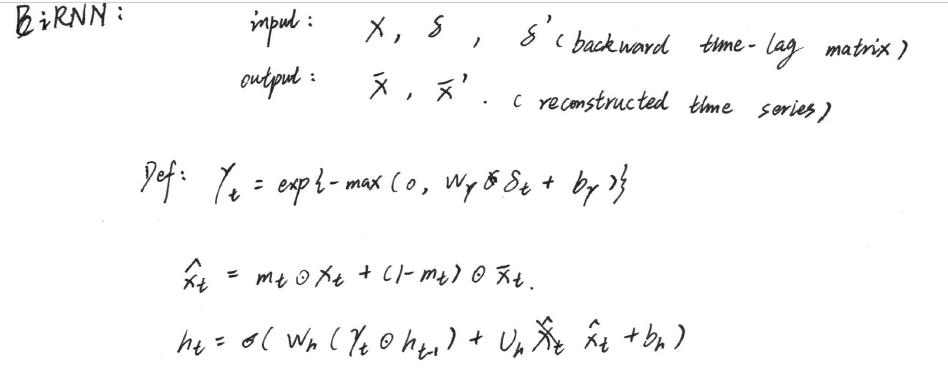 BiRNN: input: X, δ, δ' (backward time-lag matrix)
output: x̄, x̄'. (reconstructed time series)
Def: γₜ = exp{-max(0, Wγ δₜ + bγ)}
x̂ₜ = mₜ ⊙ xₜ + (1-mₜ) ⊙ x̄ₜ.
hₜ = σ(Wₕ(γₜ ⊙ hₜ₋₁) + Uₕ x̂ₜ + bₕ)